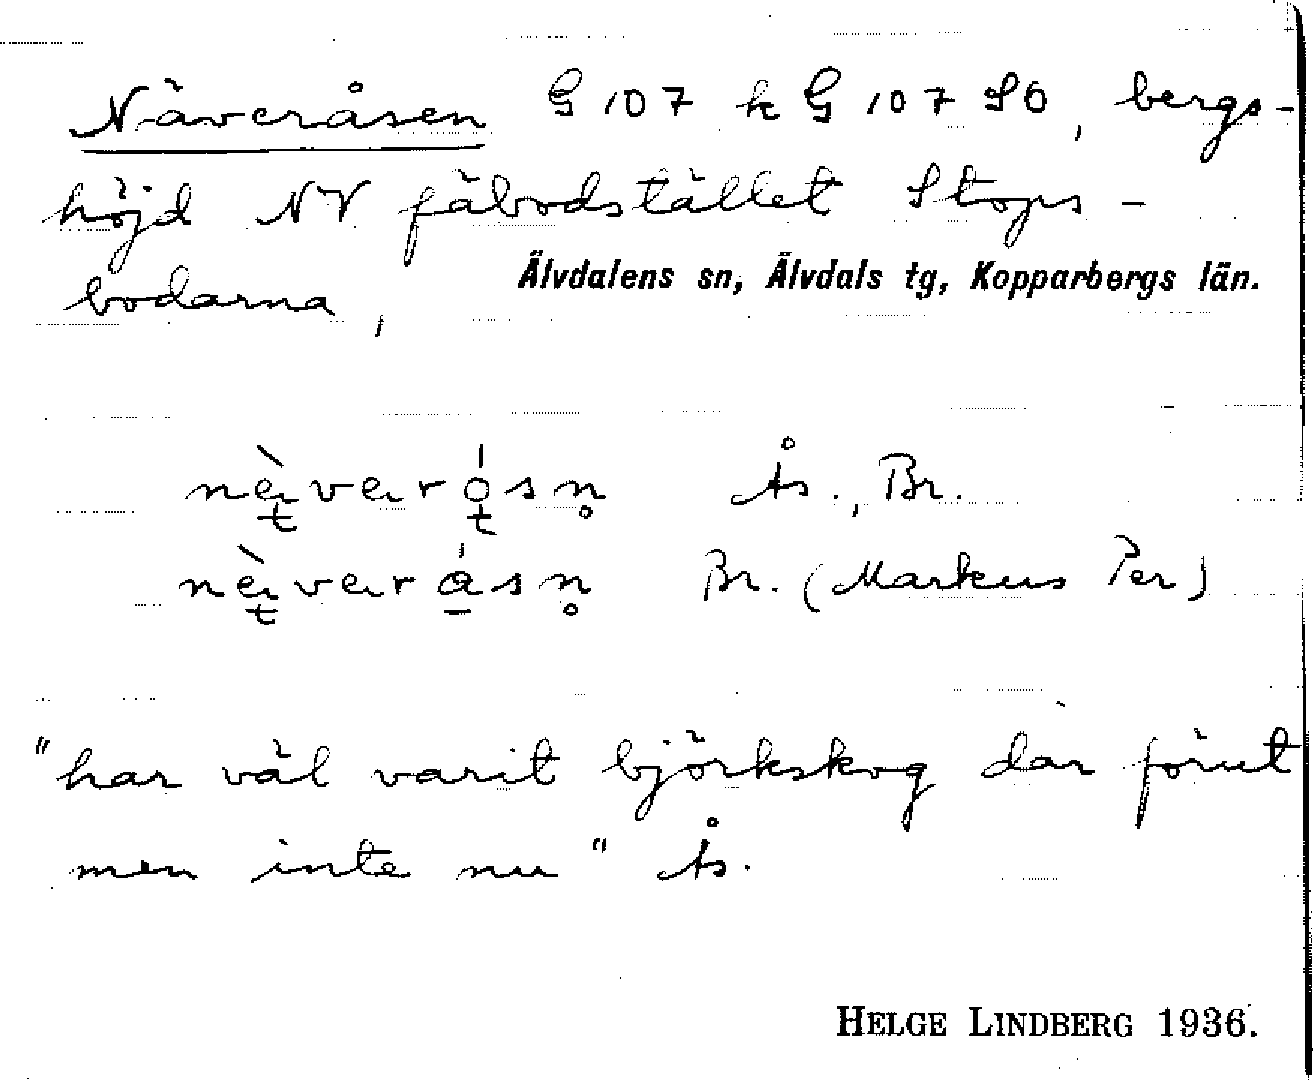 Näveråsen G 107 k G 107 SO, bergs-
höjd NV fäbodstället Stops-
bodarna,
Älvdalens sn, Älvdals tg, Kopparbergs län.
nèverósn̥ Ås., Br.
nèverásn̥ Br. (Markus Per)
"har väl varit björkskog där förut
men inte nu" Ås.
HELGE LINDBERG 1936.